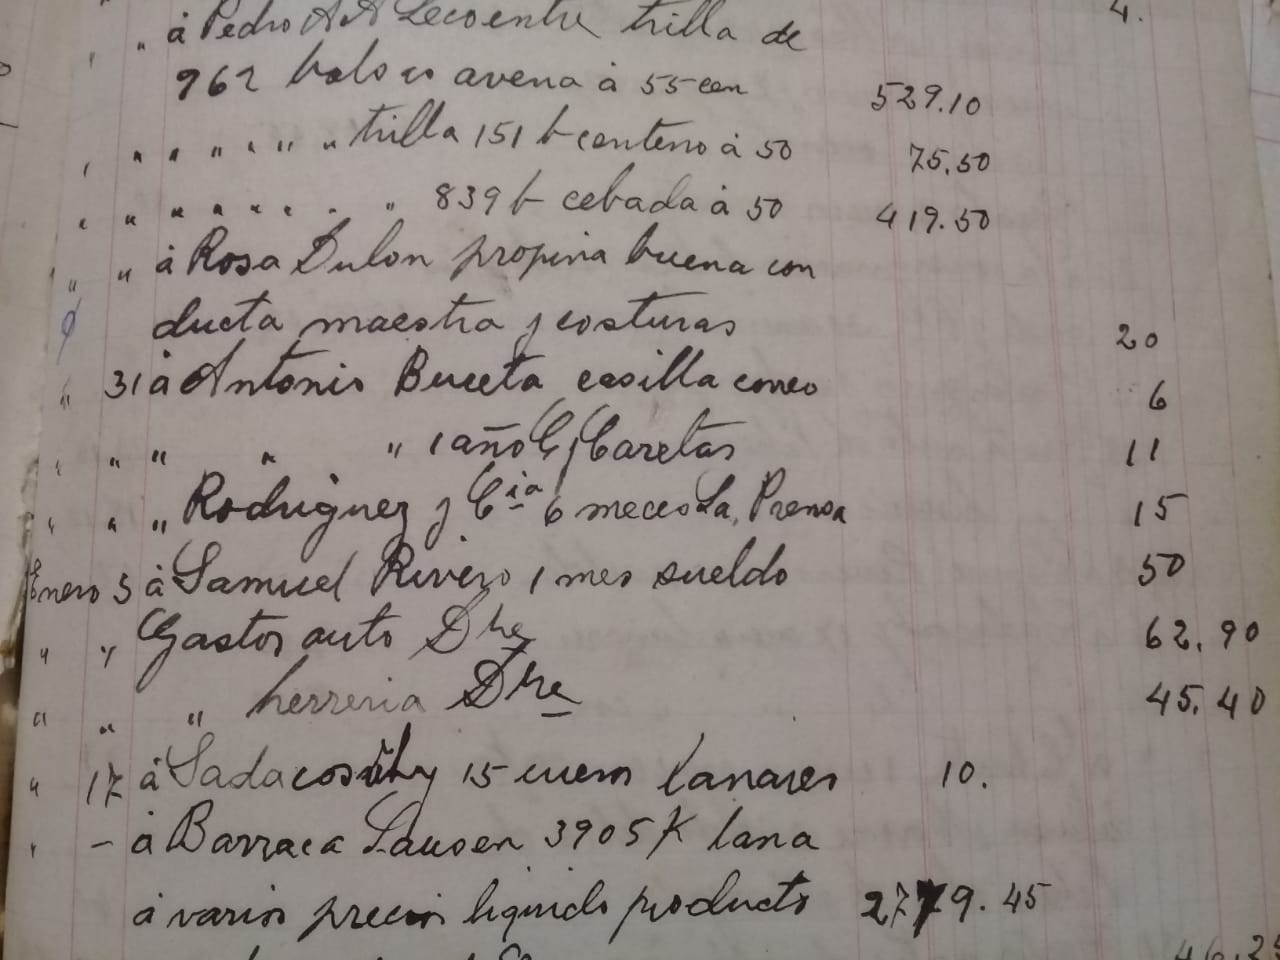 " à Pedro A A Lecoentre trilla de 4.
962 bolsas avena à 55 cen 529.10
" " " " " " " trilla 151 b centeno à 50 75.50
" " " " " " " " 839 b cebada à 50 419.50
" " à Rosa Dulon propina buena con
ducta maestra y costuras 20
" 31 à Antonio Buceta casilla correo 6
" " " " " 1 año C/Caretas 11
" " " Rodriguez y Cia 6 meces La Prensa 15
Enero 3 à Samuel Rivero 1 mes sueldo 50
" " Gastos auto Dbre 62.90
" " " herreria Dbre 45.40
" 17 à 15 cueros lanares 10.
" - à Barraca Lausen 3905 K lana
à varios precios liquido producto 2779.45
46.25